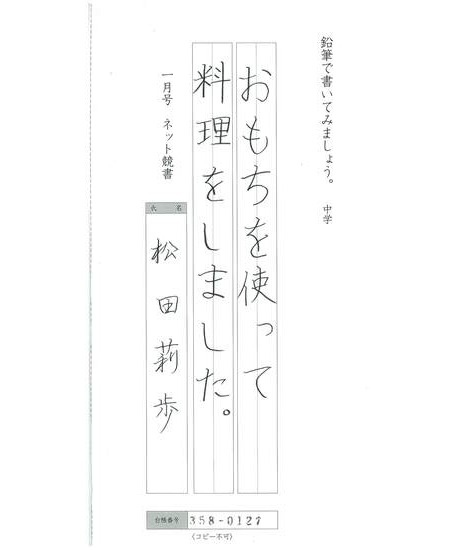 鉛筆で書いてみましょう。 中学
おもちを使って
料理をしました。
一月号 ネット競書
氏名
松田莉歩
台帳番号 358-0127
(コピー不可)